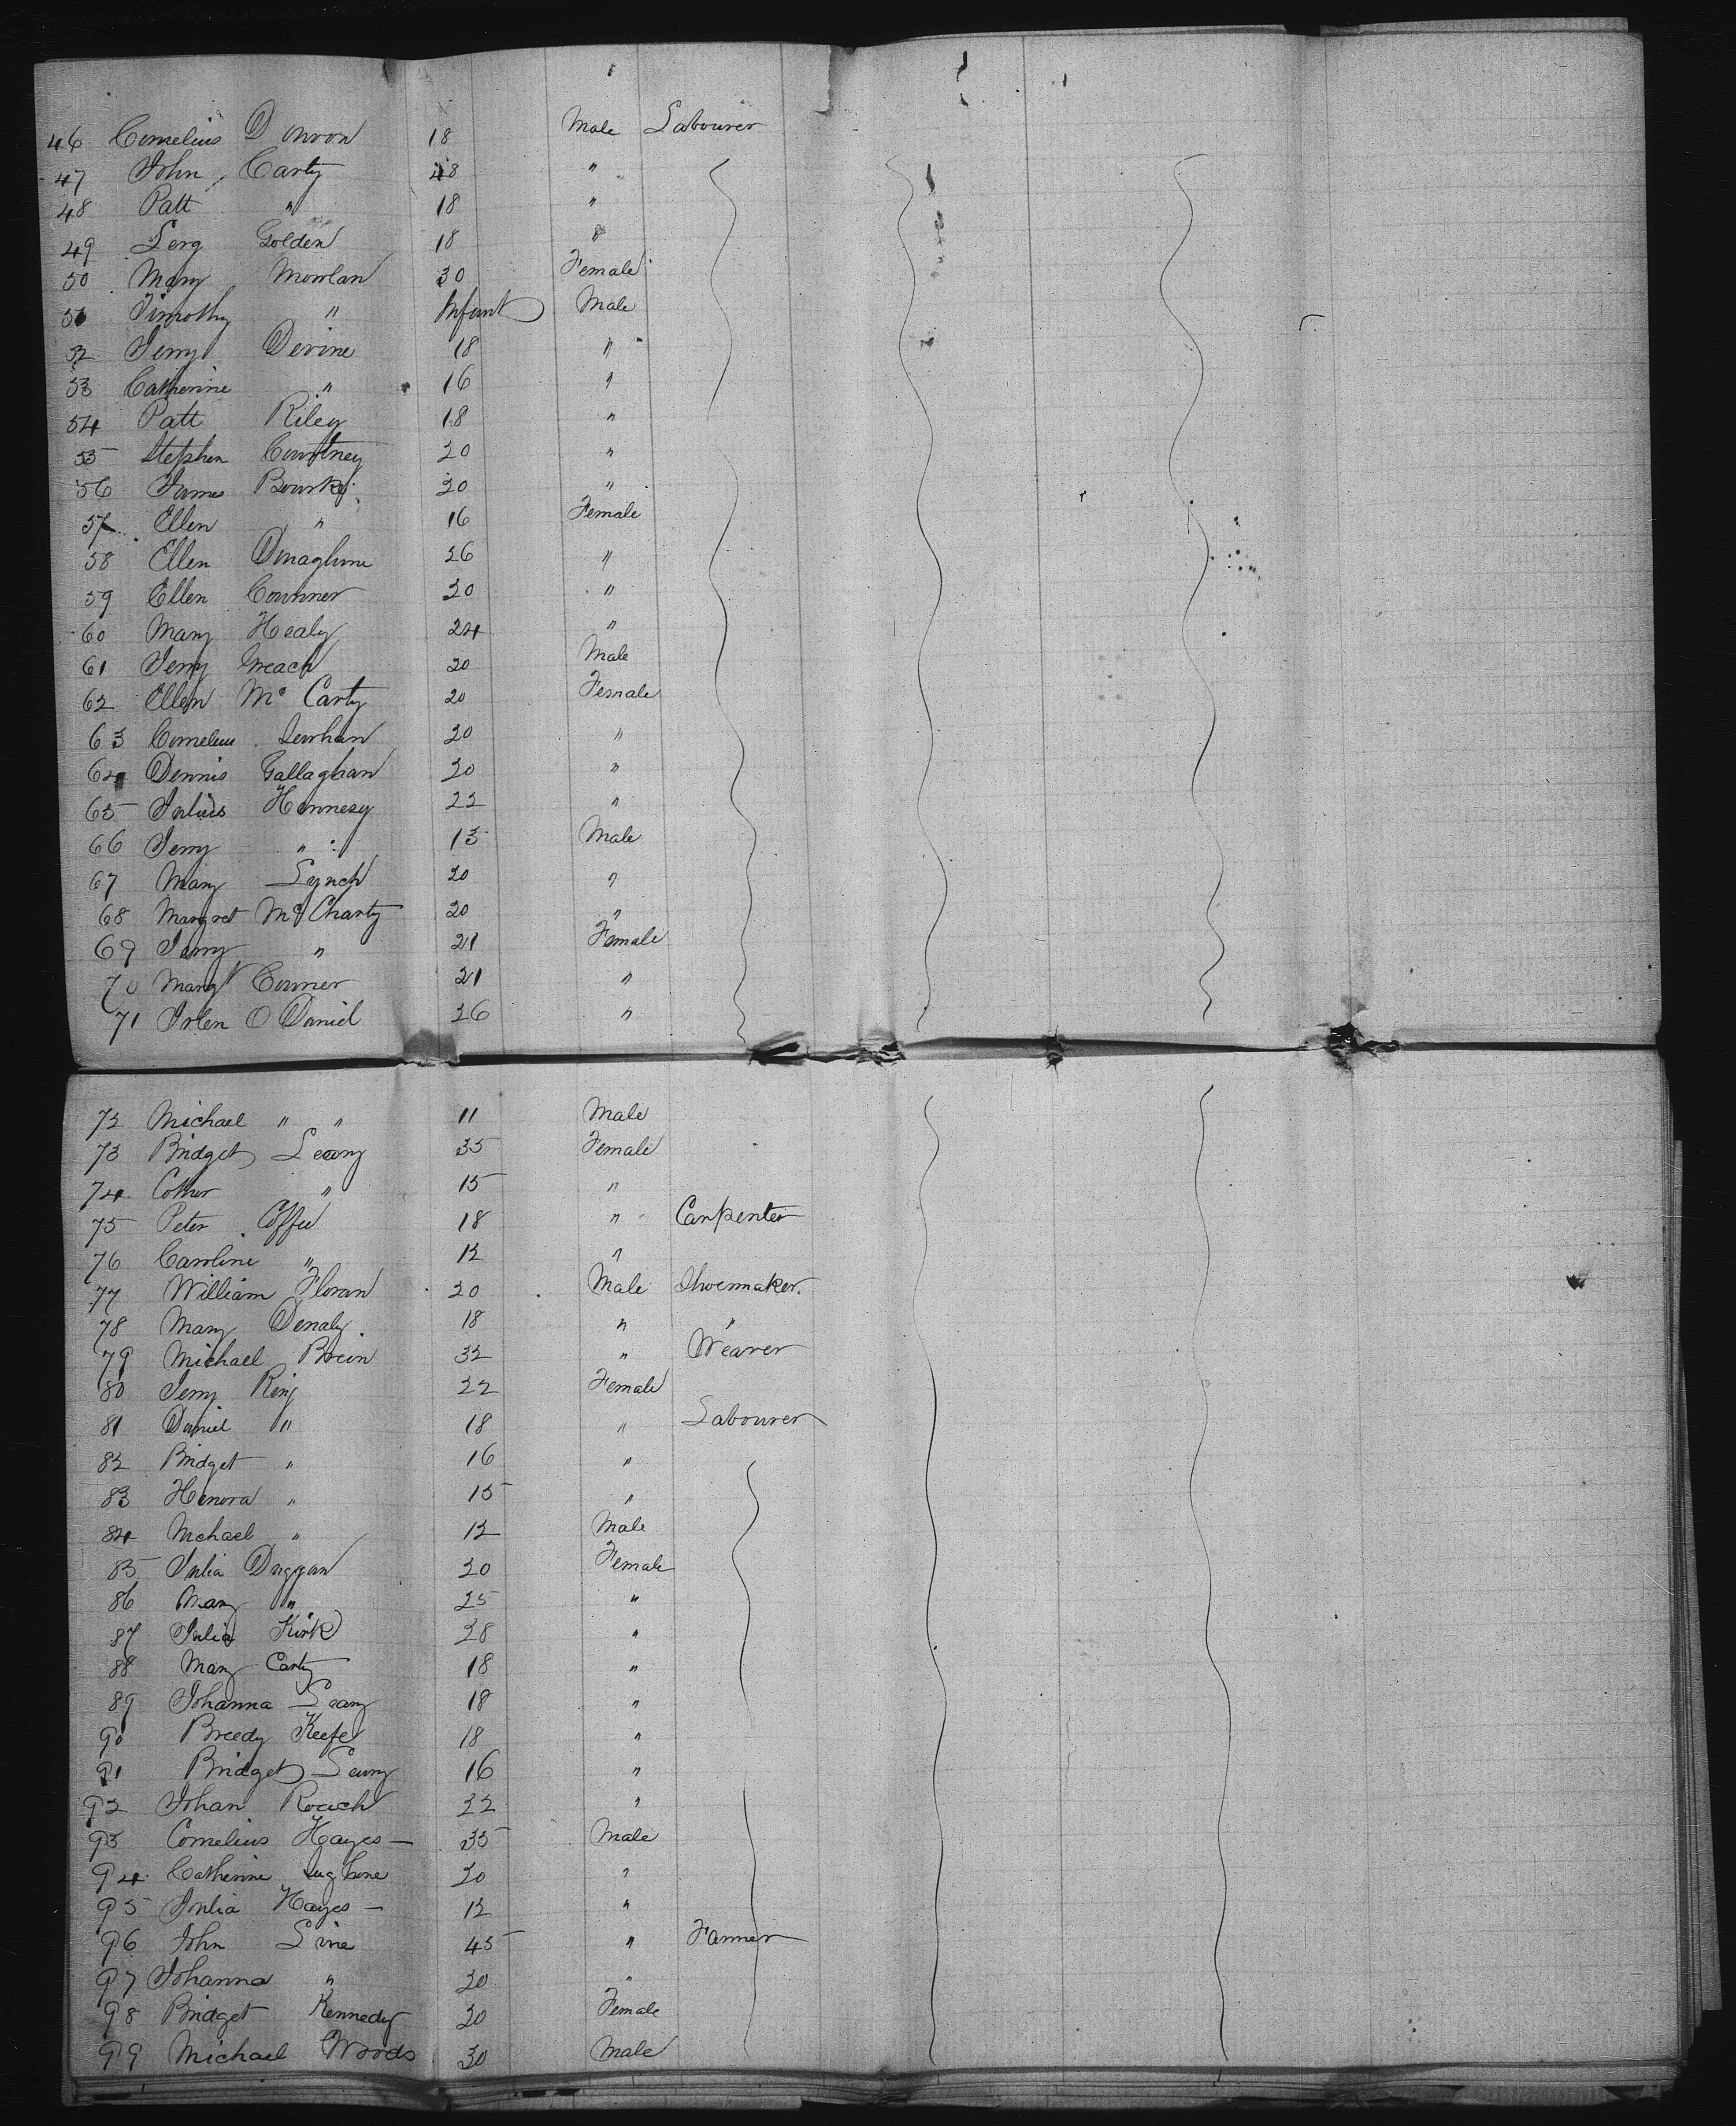 46 Cornelius Donvon 18 Male Labourer
47 John Carty 48 "
48 Patt " 18 "
49 Golden 18 "
50 Mary Mowlan 30 Female
51 Timothy " Infant Male
52 Jerry Devine 18 "
53 Catherine " 16 "
54 Patt Riley 18 "
55 Stephen Courtney 20 "
56 James Bourke 20 "
57 Ellen " 16 Female
58 Ellen Donaghue 26 "
59 Ellen Counner 20 "
60 Mary Healy 24 "
61 Jerry 20 Male
62 Ellen Mc Carty 20 Female
63 Cornelius 20 "
64 Dennis Gallaghan 20 "
65 Julius Hennesy 22 "
66 Jerry " 13 Male
67 Mary Lynch 20 "
68 Margret Mc Charty 20 "
69 Jerry " 21 Female
70 Margt Conner 21 "
71 O Daniel 26 "
72 Michael " " 11 Male
73 Bridget Leary 35 Female
74 " 15 "
75 Peter Coffee 18 " Carpenter
76 Caroline " 12 "
77 William Floran 20 Male Shoemaker.
78 Mary Denaly 18 " "
79 Michael Brein 32 " Weaver
80 Jerry Ring 22 Female
81 Daniel " 18 " Labourer
82 Bridget " 16 "
83 Honora " 15 "
84 Michael " 12 Male
85 Julia Duggan 20 Female
86 Mary " 25 "
87 Julia Kirk 28 "
88 Mary Carty 18 "
89 Johanna Leary 18 "
90 Breedy Keefe 18 "
91 Bridget Leary 16 "
92 Johan Roach 22 "
93 Cornelius Hayes — 35 Male
94 Catherine 20 "
95 Julia Hayes — 12 "
96 John Line 45 " Farmer
97 Johanna " 20 "
98 Bridget Kennedy 20 Female
99 Michael Woods 30 Male